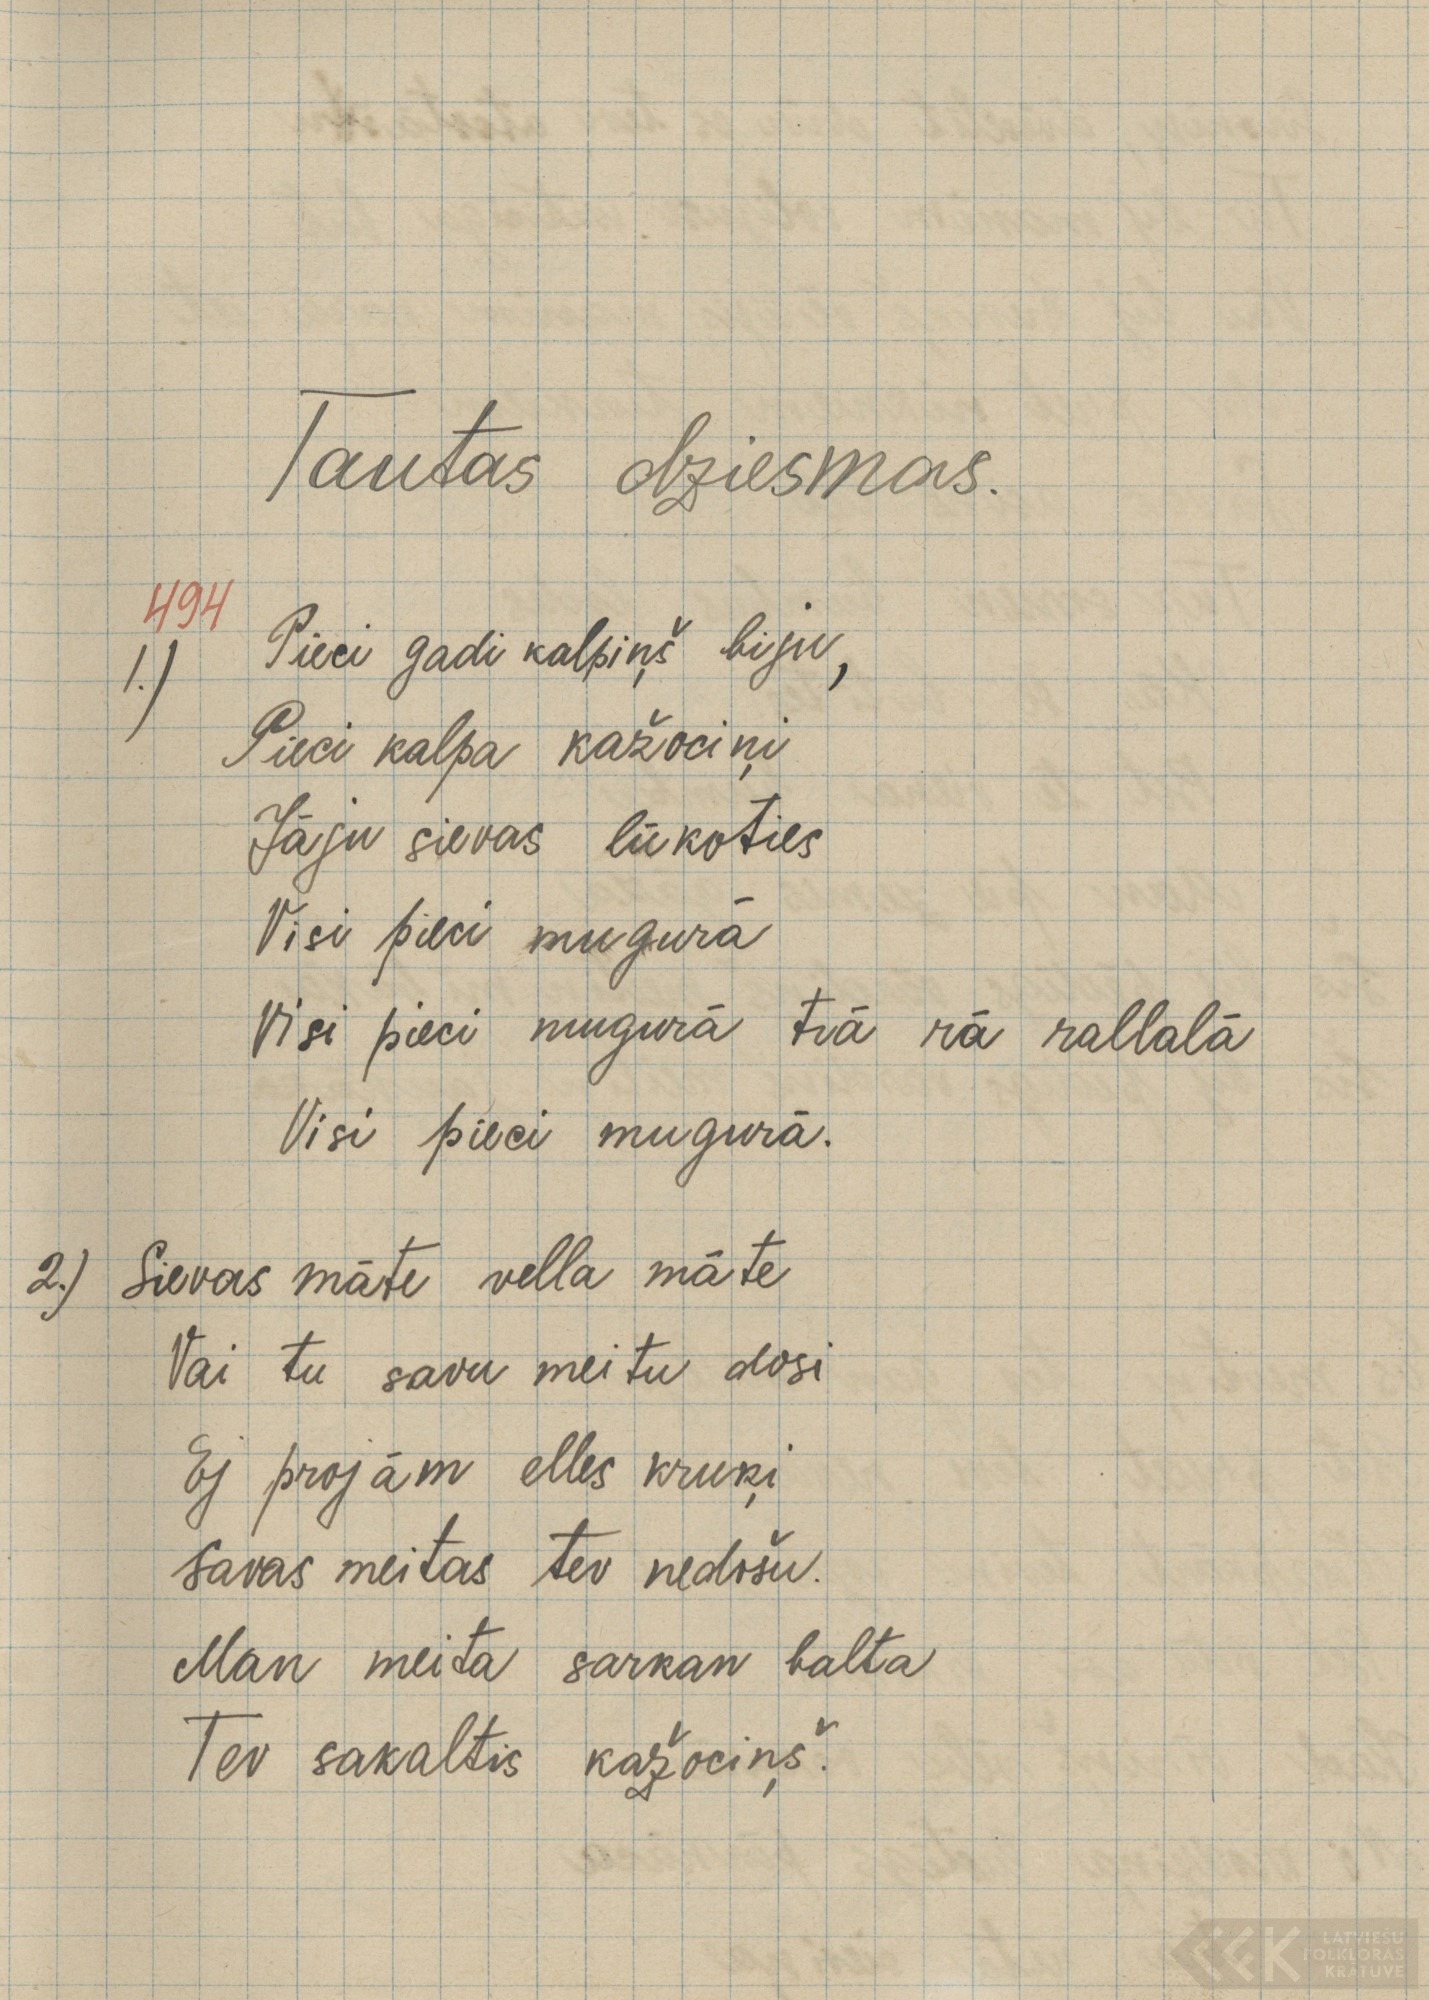 Tautas dziesmas.
494
1.) Pieci gadi kalpiņš biju,
Pieci kalpa kažociņi
Jāju sievas lūkoties
Visi pieci mugurā
Visi pieci mugurā trā rā rallalā
Visi pieci mugurā.
2.) Sievas māte vella māte
Vai tu savu meitu dosi
Ej projām elles kruķi
Savas meitas tev nedošu.
Man meita sarkan balta
Tev sakaltis kažociņš.
LATVIEŠU
FOLKLORAS
KRĀTUVE